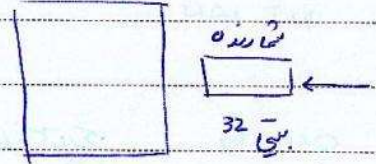 شمارنده
32 بیتی